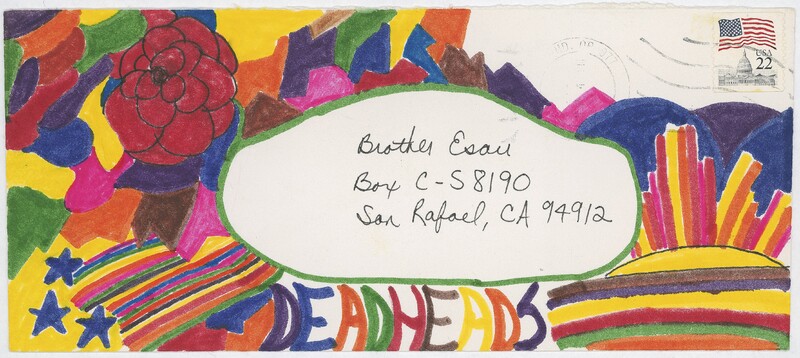 USA
22
Brother Esau
Box C-S 8190
San Rafael, CA 94912
DEADHEADS